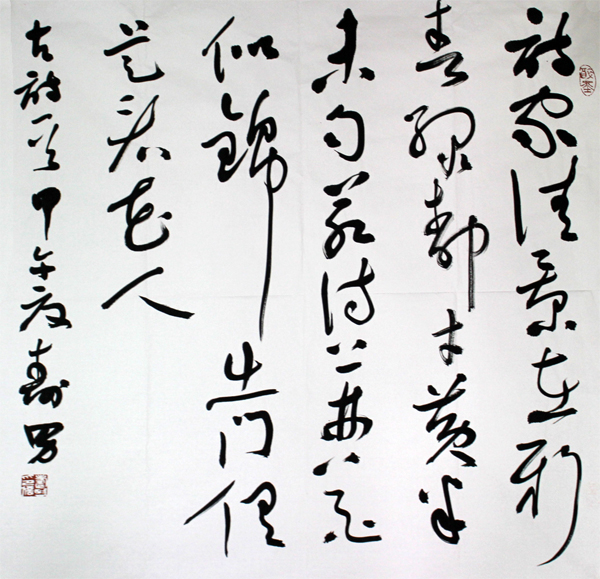 诗家清景在新
春绿柳才黄半
未匀若待上林花
似锦出门俱
是看花人
古诗一首甲午夏寿男